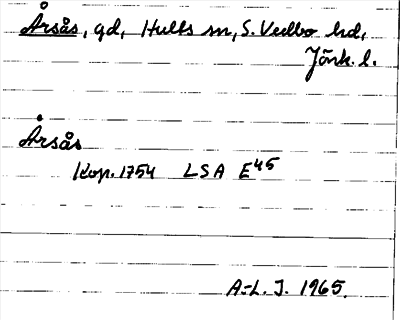 Årsås, gd, Hults sn, S. Vedbo hd,
Jönk. l.
Årsås
Kop. 1754 LSA E45
A-L. J. 1965.